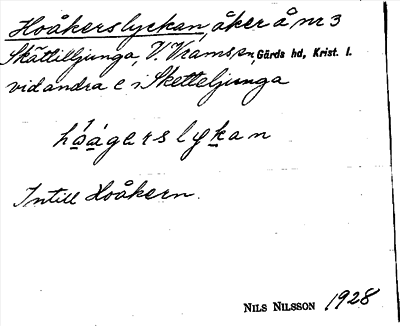 Hoåkerslyckan, åker å nr 3
Skättilljunga, V. Vrams sn, Gärds hd, Krist. l.
vid andra e i Sketteljunga
hóágerslykan
Intill Hoåkern.
NILS NILSSON 1928